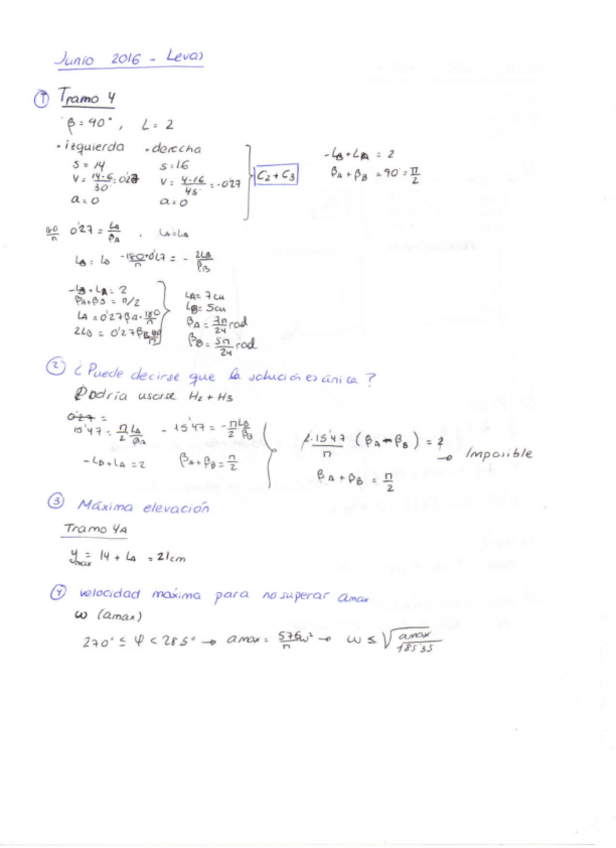 Junio 2016 - Levas
① Tramo 4
β = 90°, L = 2
• izquierda • derecha
s = 14 s = 16
v = (14-6)/30 = 0'27 v = (4-16)/45 = -0'27
a = 0 a = 0
C2 + C3
-LB + LA = 2
βA + βB = 90 = π/2
180/π 0'27 = LA/βA , LA = LA
LB = LB -180/π · 0'27 = - 2LB/βB
-LB + LA = 2
βA + βB = π/2
LA = 0'27 βA · 180/π
2LB = 0'27 βB 180/π
LA = 7 cm
LB = 5 cm
βA = 7π/24 rad
βB = 5π/24 rad
② ¿Puede decirse que la solución es única?
Podría usarse H2 + H3
0'27 =
15'47 = π/2 LA/βA - 15'47 = -π/2 LB/βB
-LB + LA = 2 βA + βB = π/2
2·15'47/π (βA - βB) = 2
βA + βB = π/2
→ Imposible
③ Máxima elevación
Tramo 4A
ymax = 14 + LA = 21 cm
④ velocidad máxima para no superar amax
ω (amax)
270° ≤ φ < 285° → amax = 576/π ω² → ω ≤ √(amax/183'35)